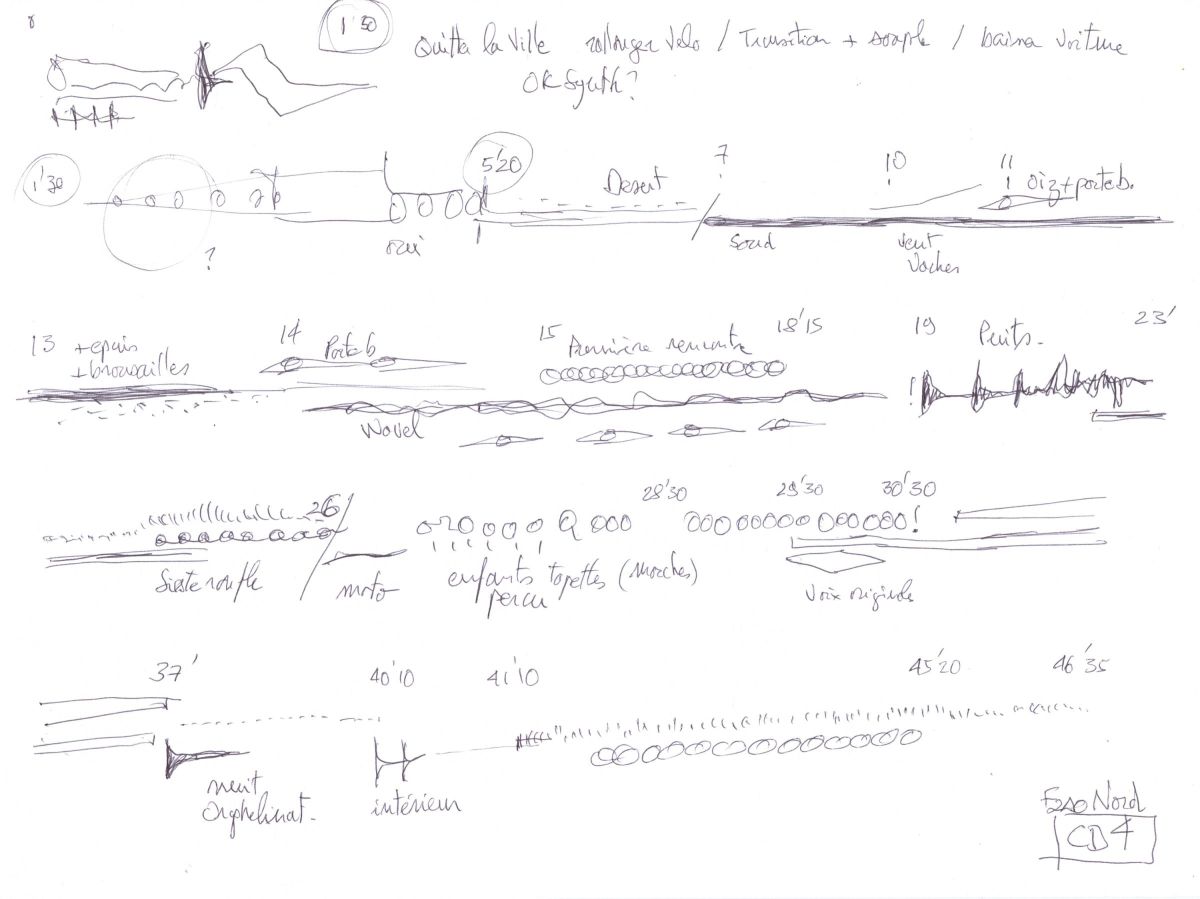 1'30
Quitter la Ville rallonger Velo / Transition + souple / baisser voiture
OK Synth ?
1'30
5'20
Desert
7
10
11
Oiz + porteb.
?
Soud
Vent
Vaches
13
+ epais
+ broussailles
14
Porteb
15
Première rencontre
18'15
19
Puits -
23'
!
26'
Sieste ronfle
moto
28'30
29'30
30'30
!
enfants tapettes (Marches)
percu
Voix originale
37'
40'10
41'10
45'20
46'35
nuit
Orphelinat -
intérieur
Nord
CD4